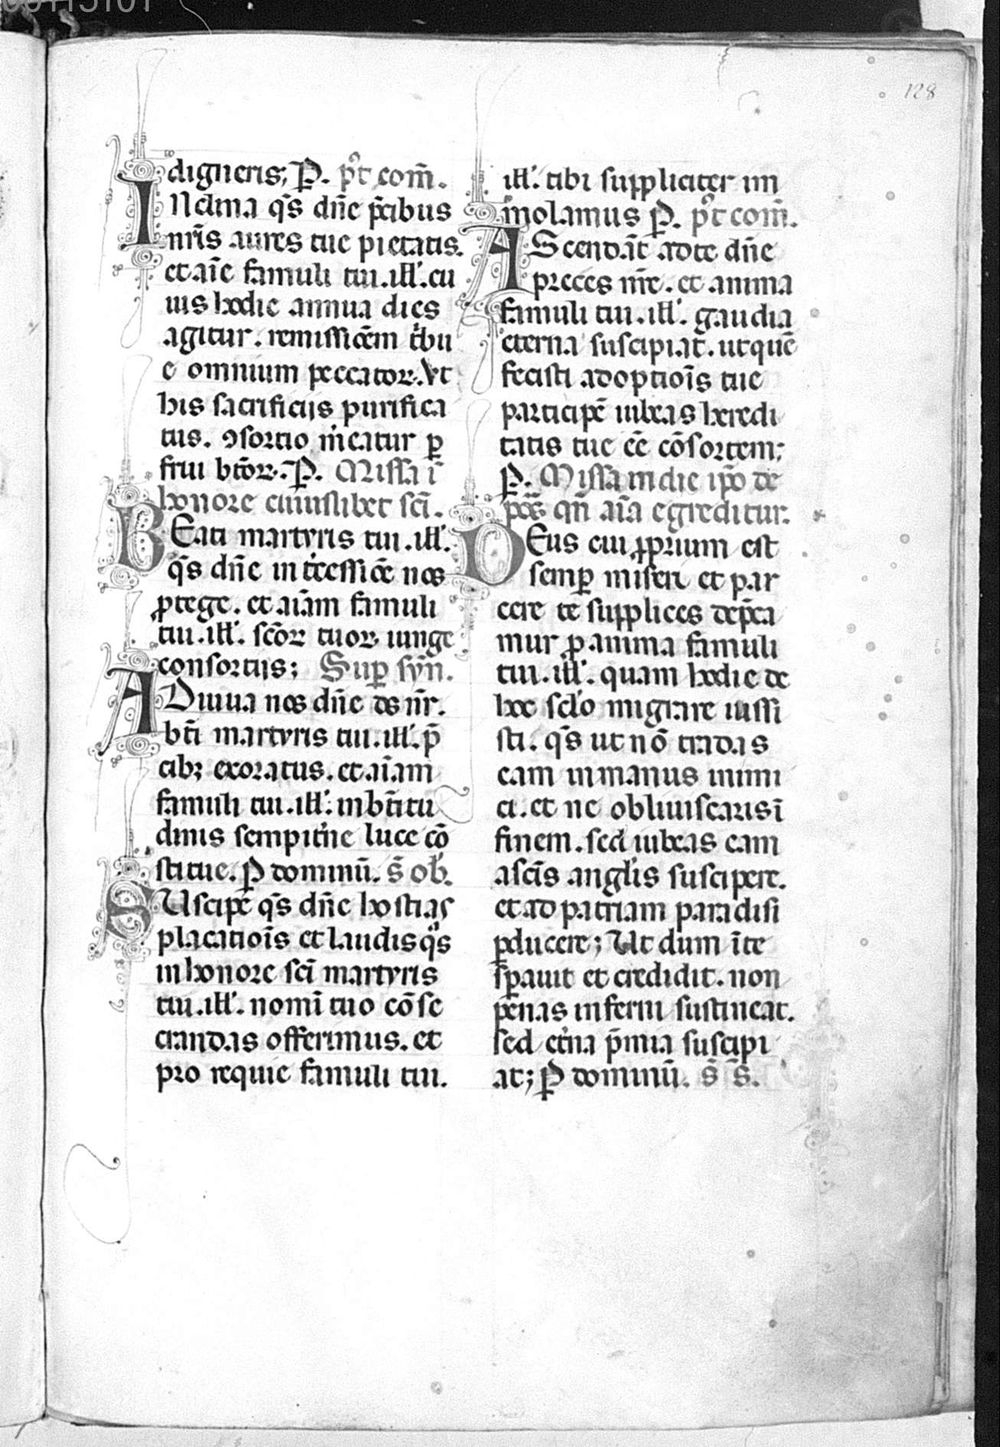 128
digneris; P. p̄t com̄.
INclina q̄s dn̄e p̄cibus
nr̄is aures tue pietatis.
et aīe famuli tui .ill'. cu
ius hodie annua dies
agitur. remissiōem tˀbu
e omnium peccatoꝝ. Vt
his sacrificiis purifica
tus. ꝯsortio mˀeatur ꝑ
frui bt̄oꝝ. P. Missa ī
honore cuiuslibet sc̄i.
BEati martyris tui .ill'.
q̄s dn̄e intˀcessiōe nos
ꝓtege. et aīam famuli
tui .ill'. sc̄oꝝ tuoꝝ iunge
consortiis; Suꝑ syn̄.
ADiuua nos dn̄e ds̄ nr̄.
bt̄i martyris tui .ill'. p̄
cibꝫ exoratus. et aīam
famuli tui .ill'. in bt̄itu
dinis sempitˀne luce cō
stitue. P dominū. s̄ ob̄.
SUscipe q̄s dn̄e hostias
placatiōis et laudis q̄s
in honore sc̄i martyris
tui .ill'. nomī tuo cōse
crandas offerimus. et
pro requie famuli tui.
ill'. tibi suppliciter im
molamus P. p̄t com̄.
AScendāt ad te dn̄e
preces nr̄e. et anima
famuli tui .ill'. gaudia
eterna suscipiat. ut quē
fecisti adoptiōis tue
participē iubeas heredi
tatis tue ēē cōsortem;
P. Missa in die ip̄o de
pōs qn̄ aīa egreditur.
DEus cui ꝓprium est
semꝑ miserˀi et par
cere te supplices dep̄ca
mur ꝓ anima famuli
tui .ill'. quam hodie de
hoc sclˀo migrare iussi
sti. q̄s ut nō tradas
eam in manus inimi
ci. et ne obliuiscaris ī
finem. sed iubeas eam
a sc̄is anglˀis suscipere.
et ad patriam paradisi
ꝑducere; Ut dum ī te
sꝑauit et credidit. non
penas inferni sustineat.
sed etˀna p̄mia suscipi
at; P dominū. s̄ s̄.